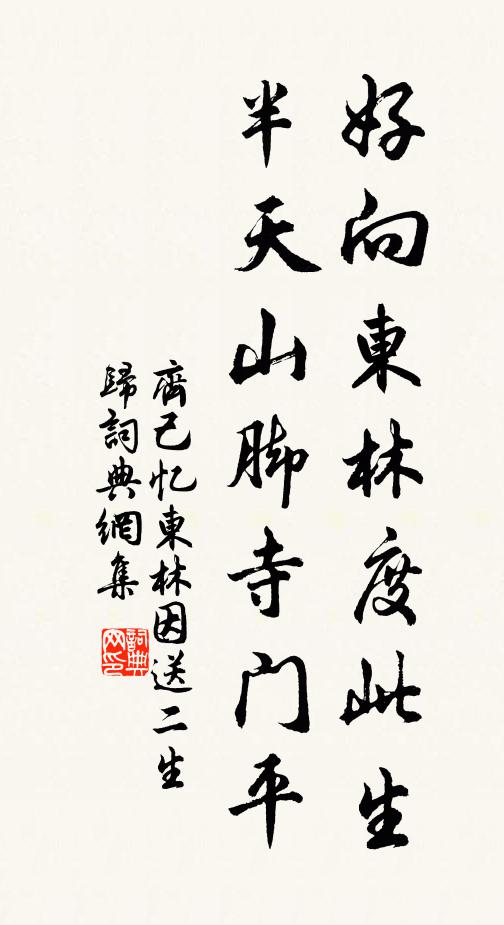 好向東林度此生
半天山脚寺門平
齊己忆東林因送二生
歸詞典網集
詞典网印